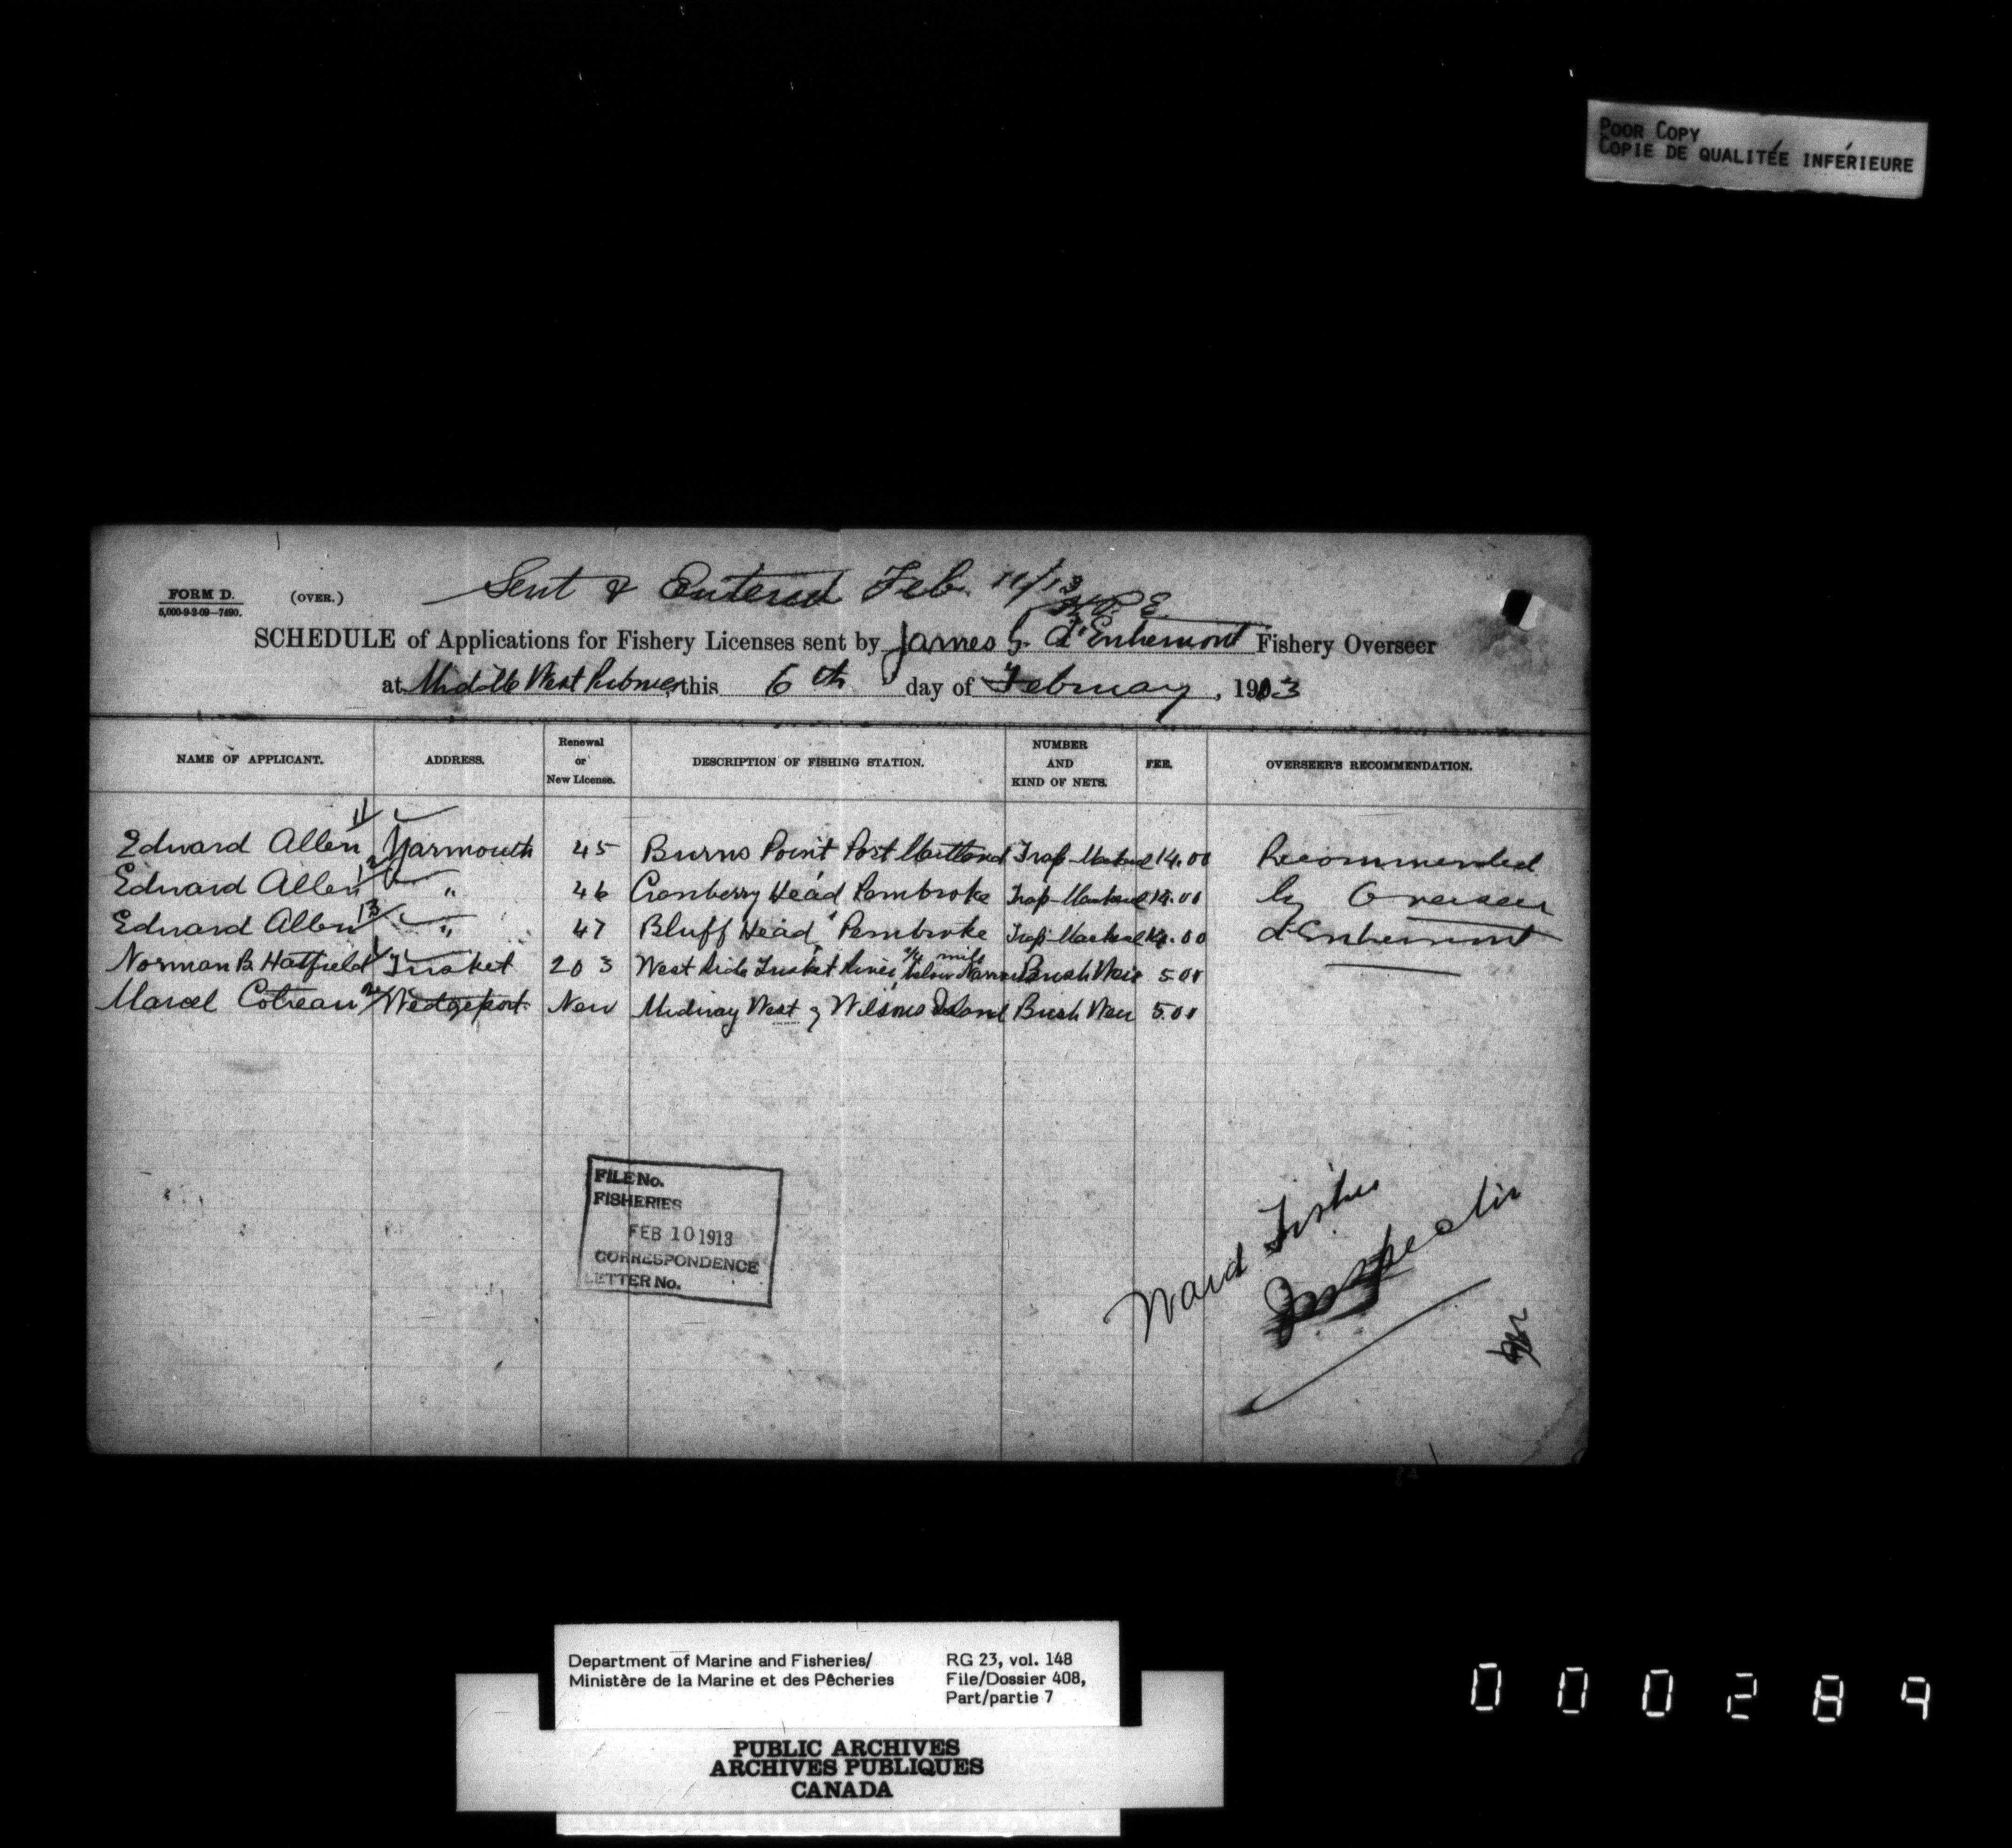 POOR COPY
COPIE DE QUALITÉE INFÉRIEURE
Sent & Entered Feb. 11/13
FORM D. (OVER.)
5,000-9-3-09—7490.
SCHEDULE of Applications for Fishery Licenses sent by James G. d'Entremont Fishery Overseer
at Middle West Pubnico, this 6th day of February, 1913
NAME OF APPLICANT. ADDRESS. Renewal or New License. DESCRIPTION OF FISHING STATION. NUMBER AND KIND OF NETS. FEE. OVERSEER'S RECOMMENDATION.
Edward Allen 11 Yarmouth 45 Burns Point Port Maitland Trap-Mackerel 14.00 Recommended
Edward Allen 12 " 46 Cranberry Head Pembroke Trap-Mackerel 14.00 by Overseer
Edward Allen 13 " 47 Bluff Head, Pembroke Trap-Mackerel 14.00 d'Entremont
Norman B. Hatfield 1 Tusket 203 West Side Tusket River, 3/4 mile below Narrows Brush Weir 5.00
Marcel Cotreau 2 Wedgeport New Midway West of Wilsons Island Brush Weir 5.00
FILE No.
FISHERIES
FEB 10 1913
CORRESPONDENCE
LETTER No.
Ward Fisher
Inspector
Department of Marine and Fisheries/
Ministère de la Marine et des Pêcheries
RG 23, vol. 148
File/Dossier 408,
Part/partie 7
PUBLIC ARCHIVES
ARCHIVES PUBLIQUES
CANADA
000289